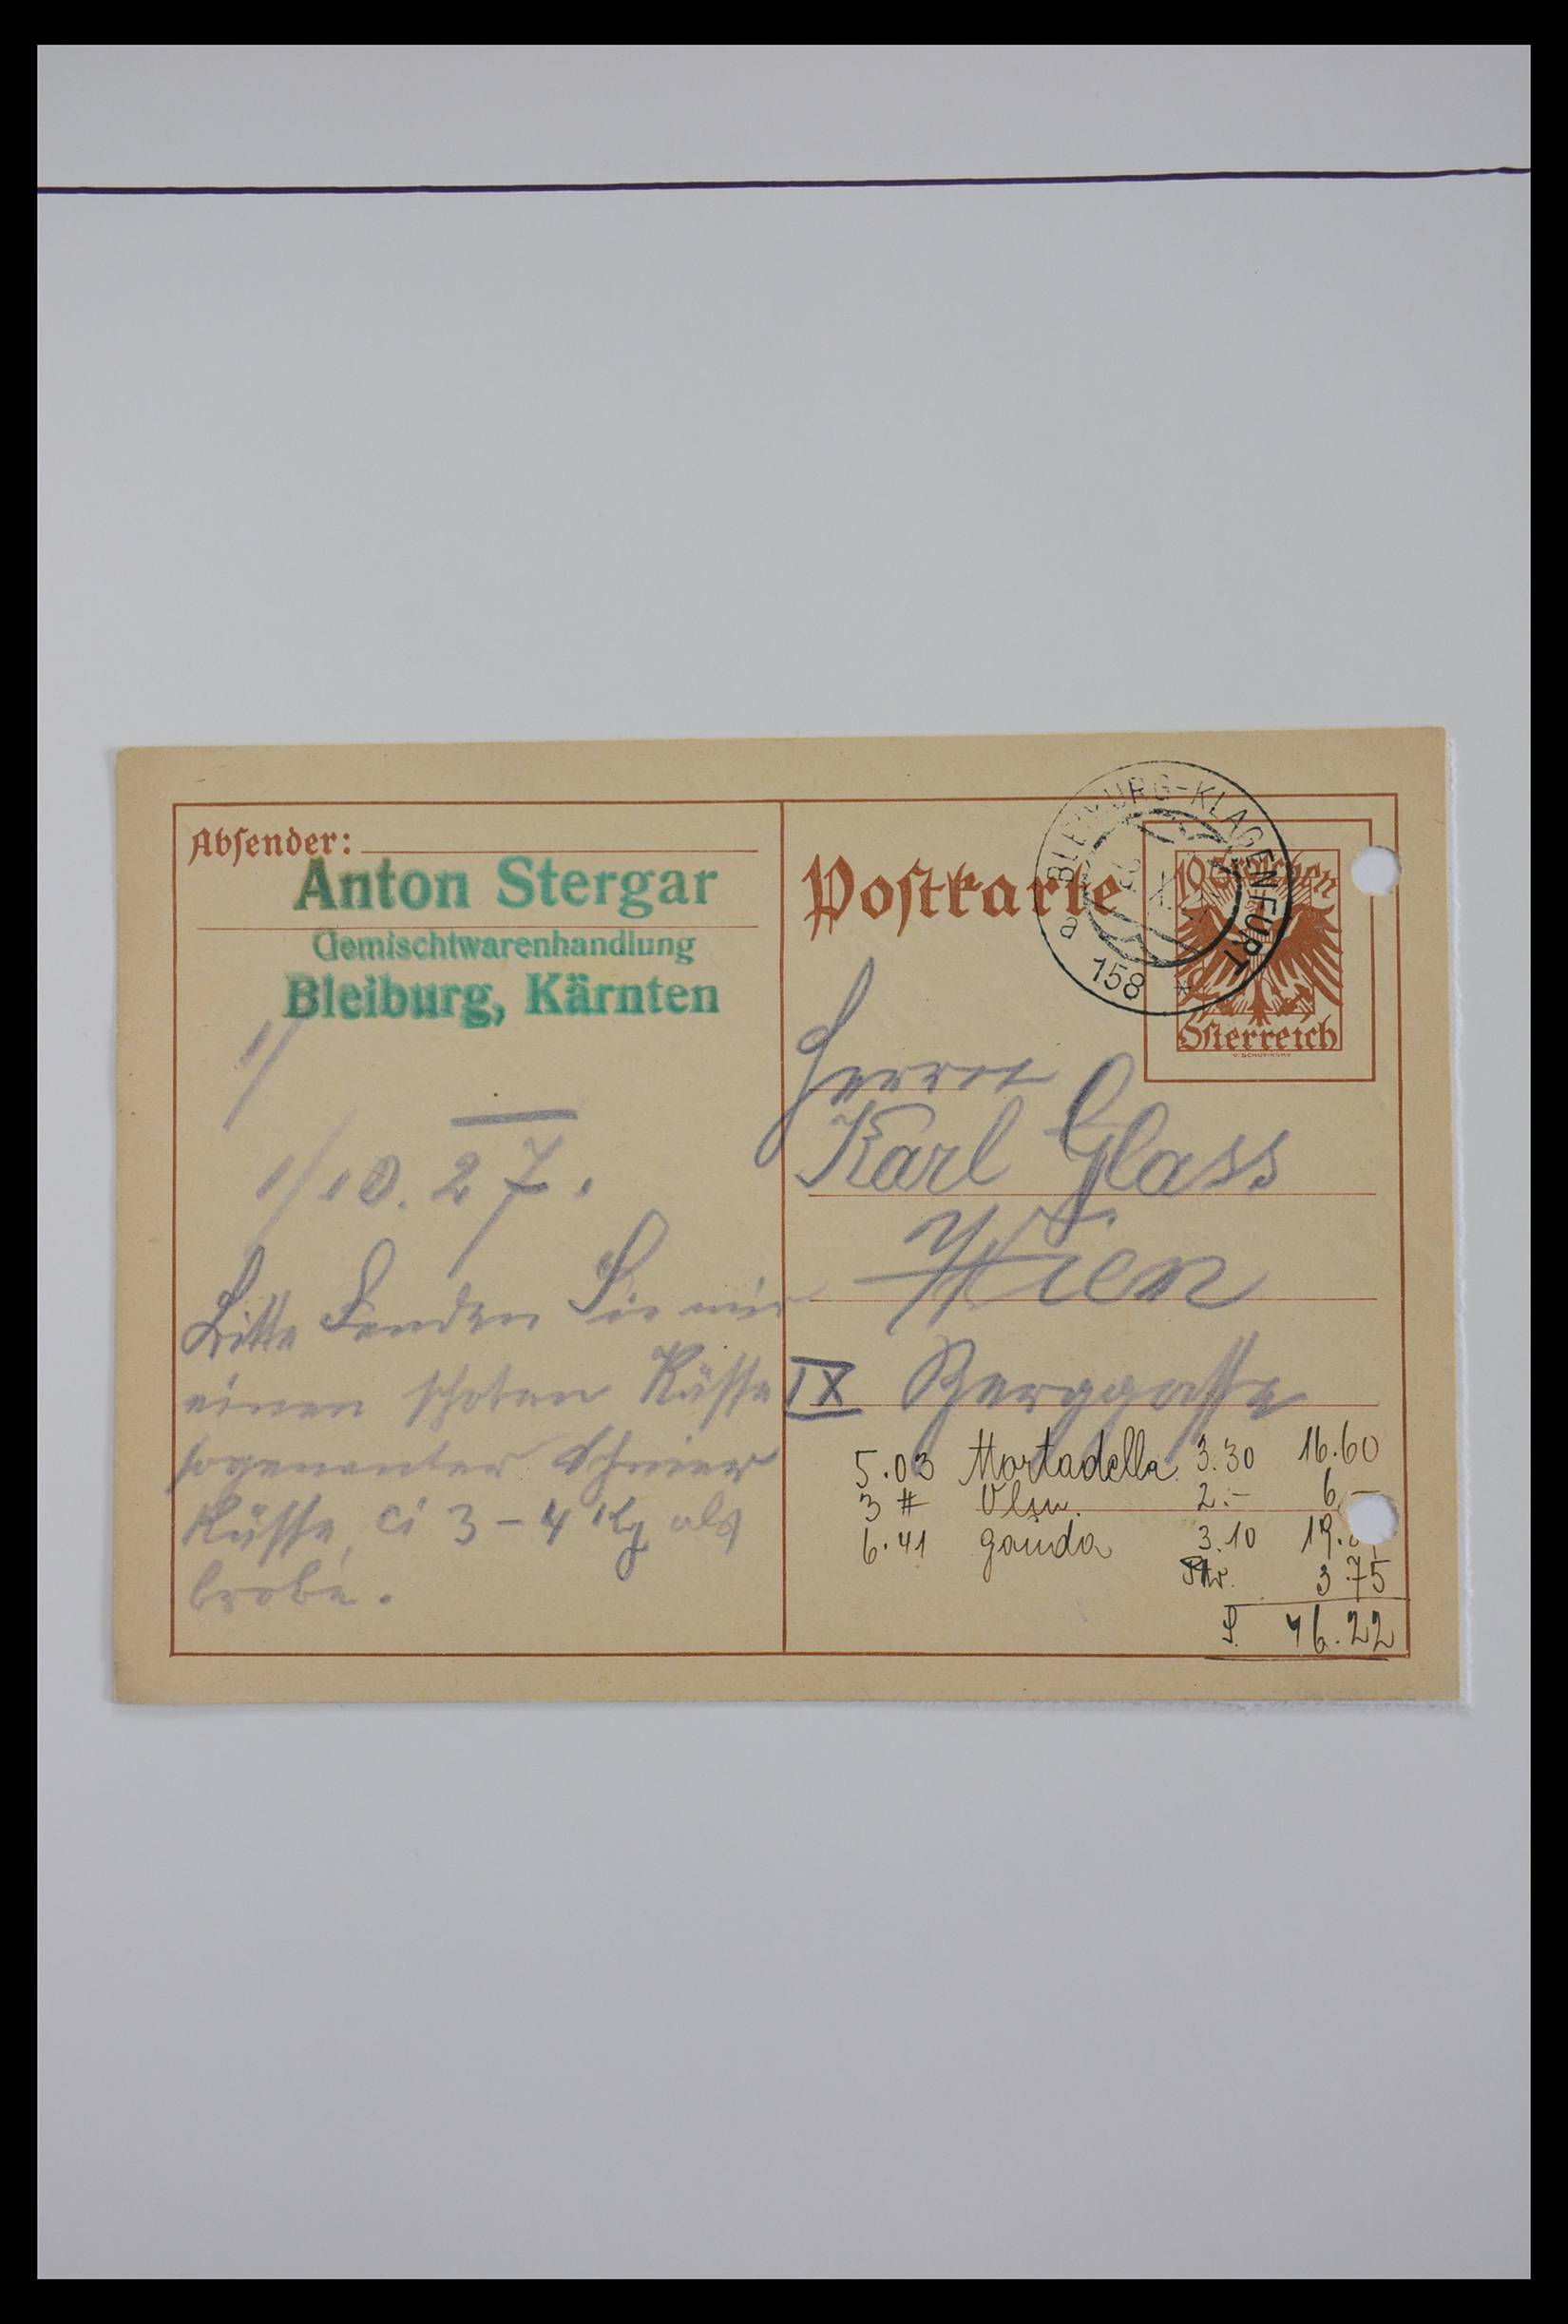 Absender:
Anton Stergar
Gemischtwarenhandlung
Bleiburg, Kärnten
1/10.27.
Bitte Senden Sie mir
einen Kässe
sogenannter Schmier
Kässe, ci 3-4 Kg als
brobe.
Postkarte
BLEIBURG-KLAGENFURT
a 158 *
10 Groschen
Österreich
Herrn
Karl Glass
Wien
IX Berggasse
5.03 Mortadella 3.30 16.60
3 # 2.- 6.-
6.41 Gouda 3.10 19.
3.75
S. 46.22